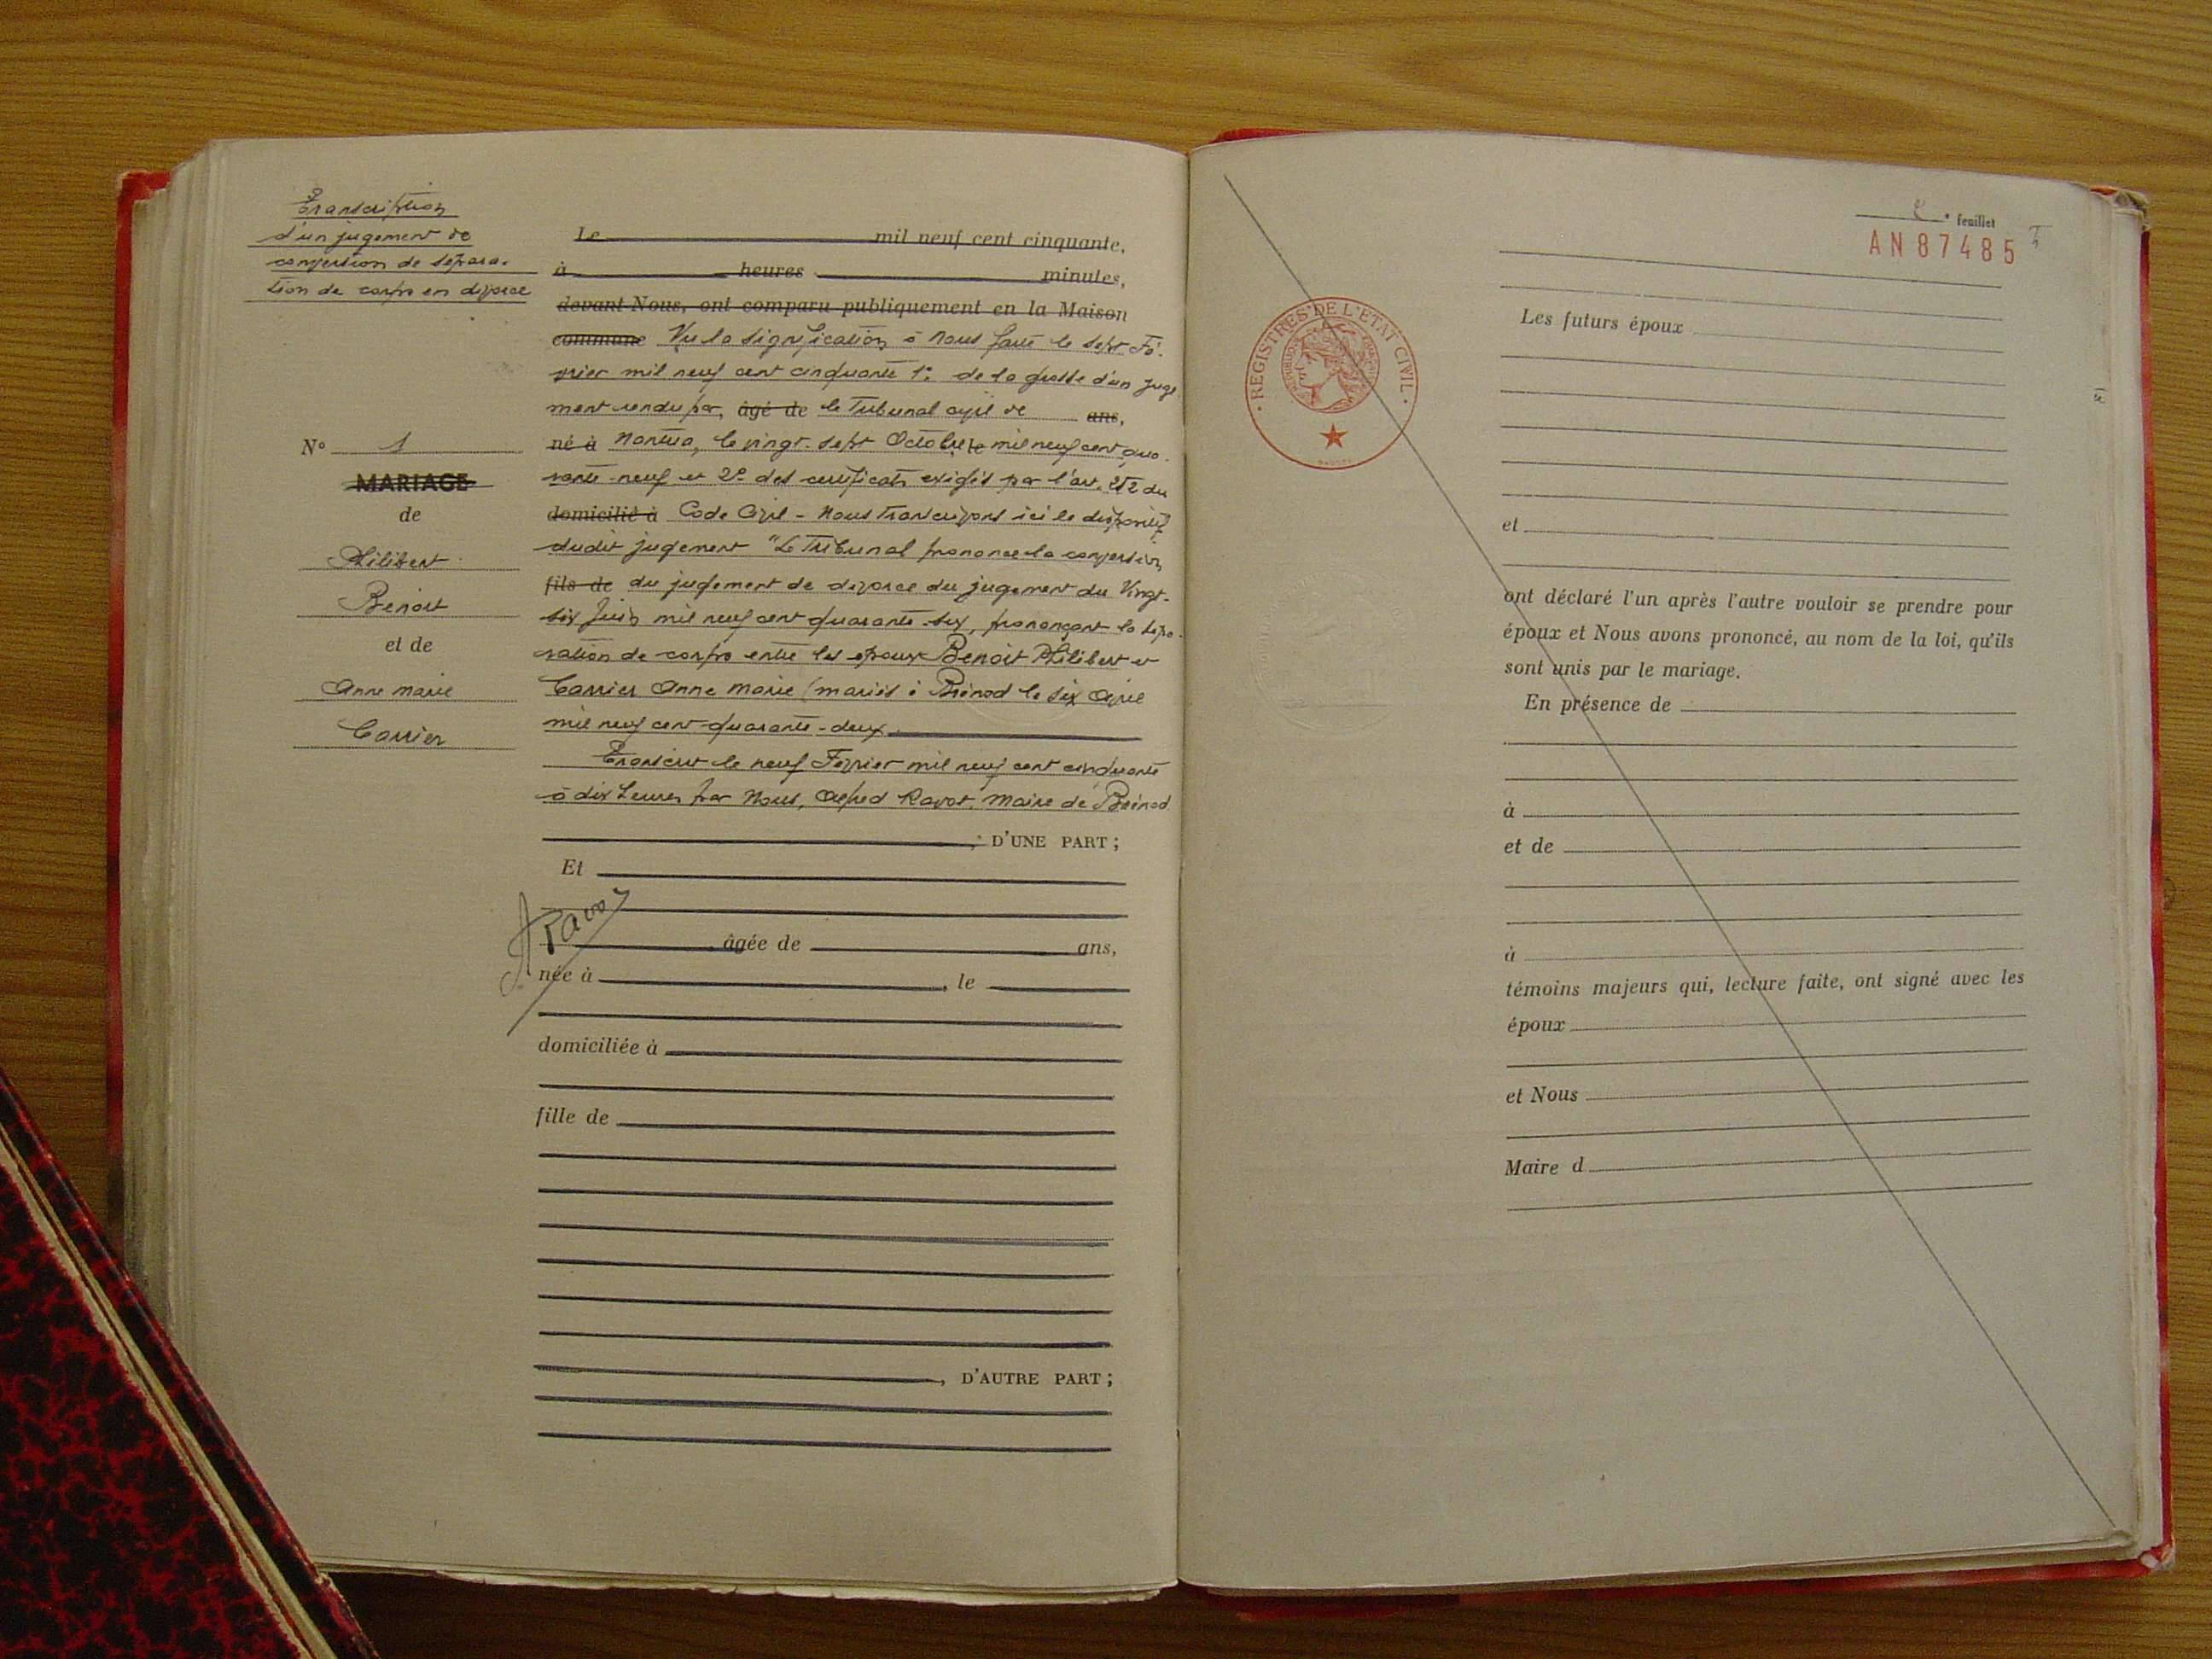 Transcription
d'un jugement de
conversion de sépara-
tion de corps en divorce
N° 1
MARIAGE
de
Philibert
Benoit
et de
Anne Marie
Carrier
Le mil neuf cent cinquante,
à heures minutes,
devant Nous, ont comparu publiquement en la Maison
commune Vu la signification à nous faite le sept Fé-
vrier mil neuf cent cinquante 1° de la grosse d'un juge
ment rendu par, âgé de le Tribunal civil de ans,
né à Nantua, le vingt-sept Octobre le mil neuf cent qua-
rante-neuf et 2° des certificats exigés par l'art. 252 du
domicilié à Code Civil - Nous transcrivons ici le dispositif
dudit jugement "Le Tribunal prononce la conversion
fils de du jugement de divorce du jugement du Vingt-
six Juin mil neuf cent quarante-six, prononçant la sépa-
ration de corps entre les époux Benoit Philibert et
Carrier Anne Marie (mariés à Brénod le six Avril
mil neuf cent quarante-deux
Transcrit le neuf Février mil neuf cent cinquante
à dix heures par Nous, Alfred Ravot, Maire de Brénod
, D'UNE PART ;
Et
ARavot
, âgée de ans,
née à , le
domiciliée à
fille de
, D'AUTRE PART ;
e feuillet
AN87485
REGISTRES DE L'ETAT CIVIL
Les futurs époux
et
ont déclaré l'un après l'autre vouloir se prendre pour
époux et Nous avons prononcé, au nom de la loi, qu'ils
sont unis par le mariage.
En présence de
à
et de
à
témoins majeurs qui, lecture faite, ont signé avec les
époux
et Nous
Maire d